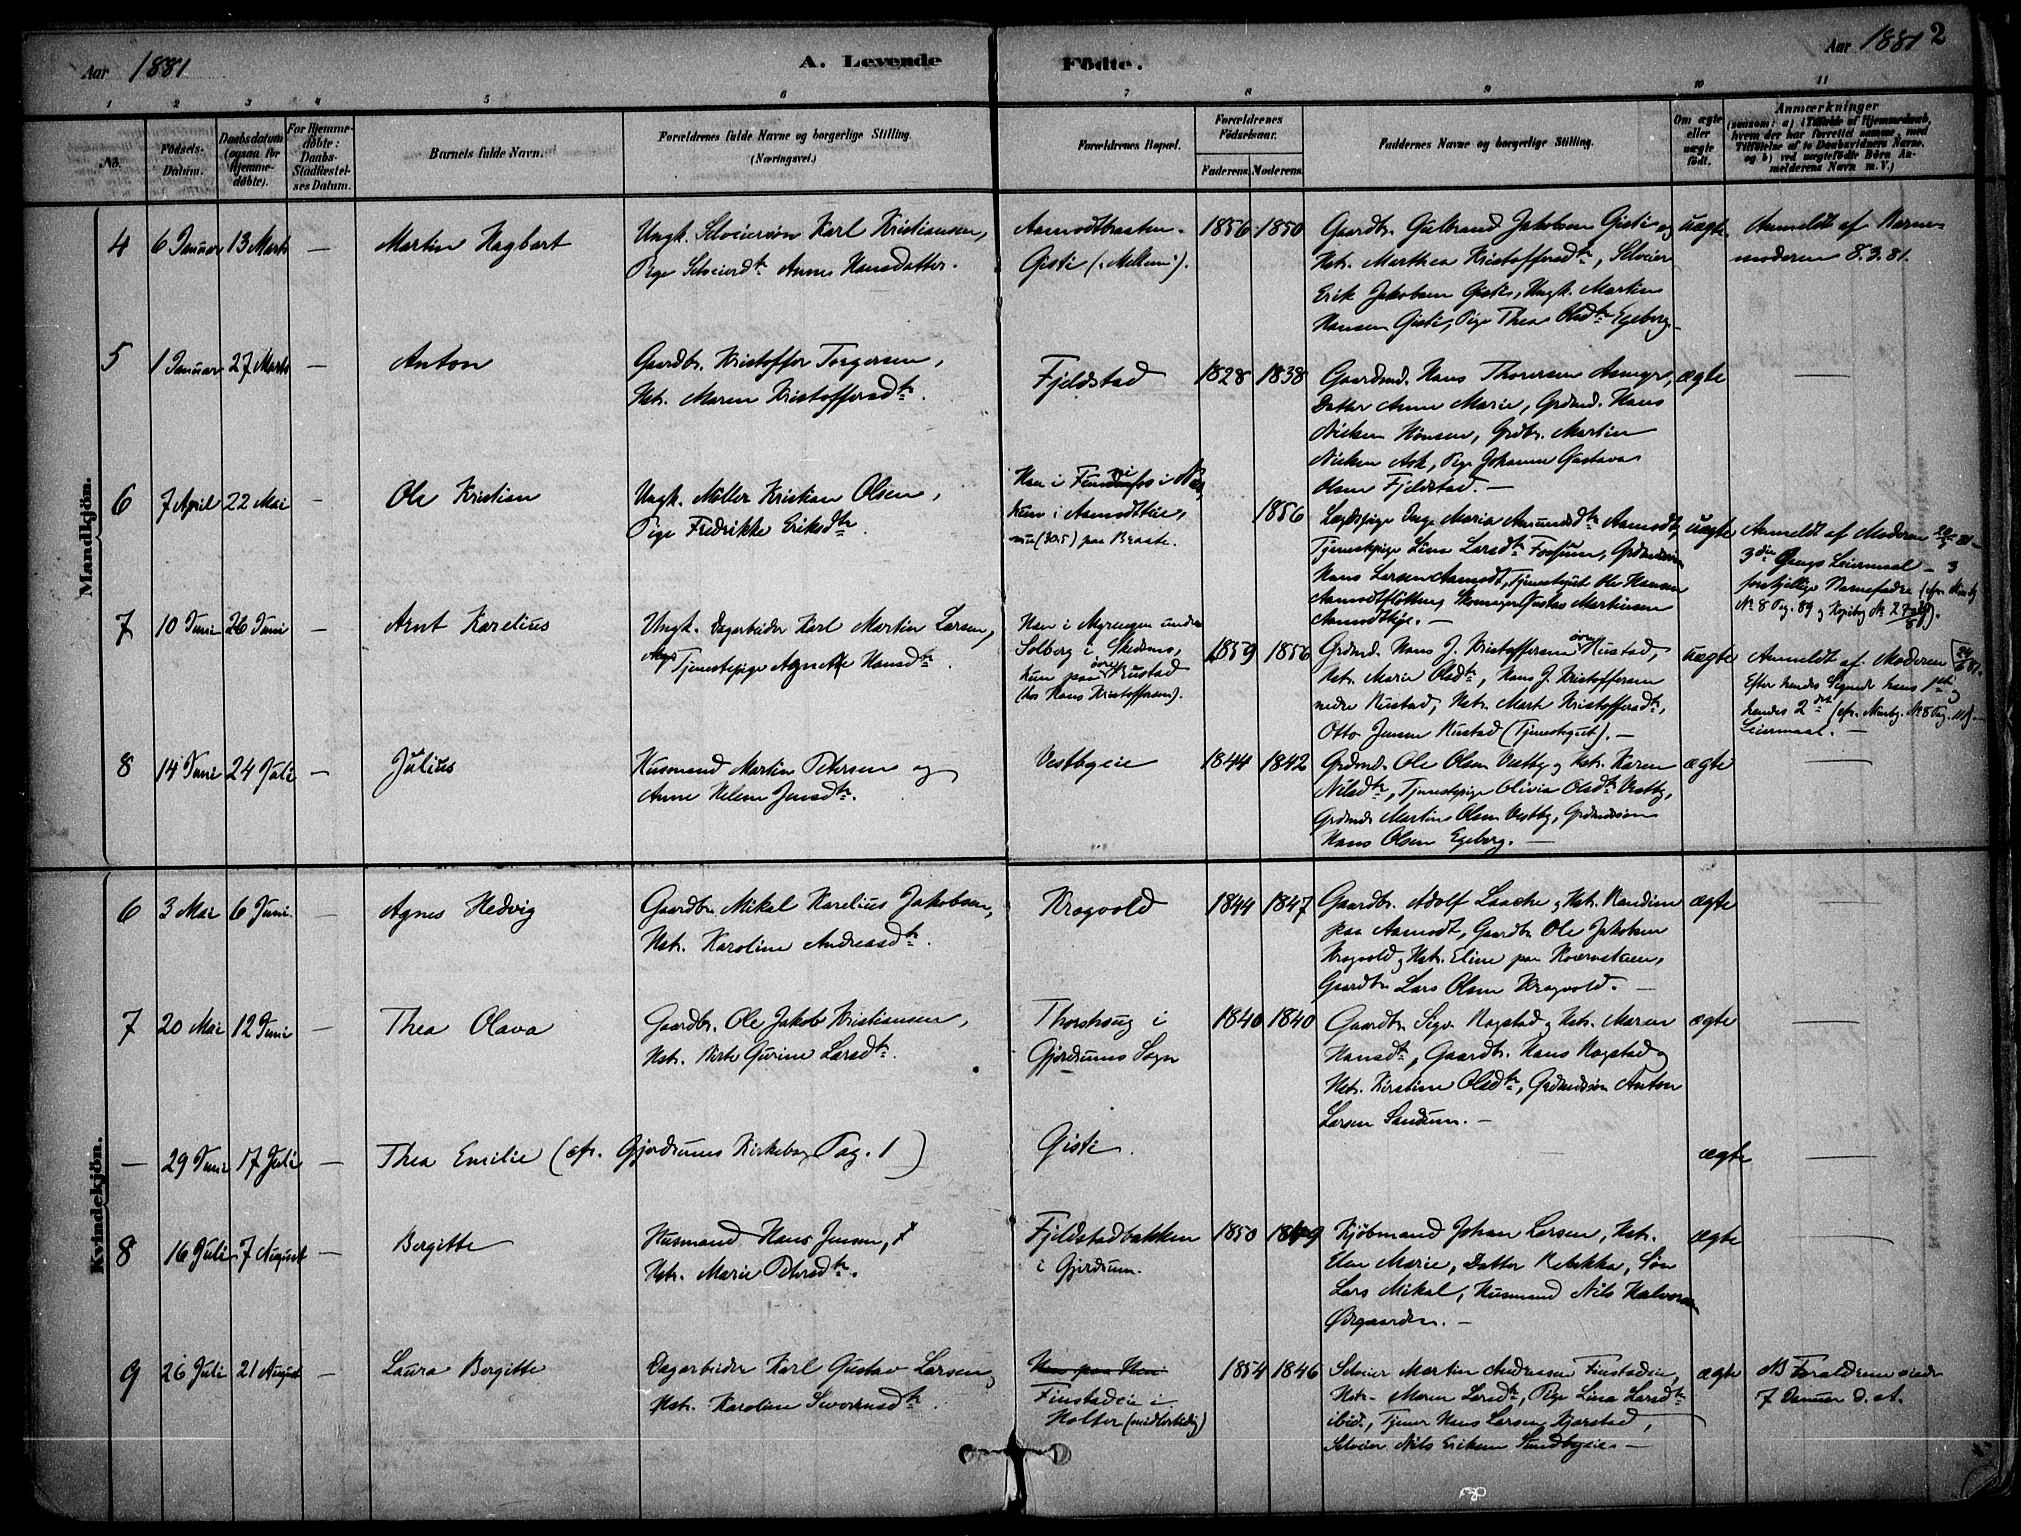 Aar 1881
A. Levende
Födte.
Aar 1881
2
1 2 3 4 5 6 7 8 9 10 11
No.
Födsels-
Datum.
Daabsdatum
(ogsaa for
Hjemme-
döbte).
For Hjemme-
döbte:
Daabs-
Stadfæstel-
ses Datum.
Barnets fulde Navn.
Forældrenes fulde Navne og borgerlige Stilling
(Næringsvei.)
Forældrenes Bopæl.
Forældrenes
Födselsaar.
Faderens. Moderens.
Faddernes Navne og borgerlige Stilling.
Om ægte
eller
uægte
födt.
Anmærkninger
(saasom: a) i Tilfælde af Hjemmedaab,
hvem der har forrettet samme, med
Tilföielse af to Daabsvidners Navne,
og b) ved uægtefödte Börn An-
melderens Navn m. V.)
Mandkjön.
4
6 Januar
13 Marts
—
Martin Hagbart
Ungk. Selveiersön Karl Kristiansen,
Pige Selveierdtr Anne Hansdatter.
Aamodtbraaten.
Gisti (Mellem).
1856
1850
Gaardbr. Gulbrand Jakobsen Gisti og
Hstr. Marthea Kristoffersdtr, Selveier
Erik Jakobsen Gisti, Ungk. Martin
Hansen Gisti, Pige Thea Olsdtr Egeberg.—
uægte
Anmeldt af Barne-
moderen 8.3.81.
5
1 Januar
27 Marts
—
Anton
Gaardbr. Kristoffer Torgersen,
Hstr. Maren Kristoffersdtr.
Fjeldstad
1828
1838
Gaardmd. Hans Thoresen Asmyr,
Datter Anne Marie, Grdmd. Hans
Nielsen Hönsen, Grdbr. Martin
Nielsen Ask, Pige Johanne Gustava
Olsen Fjeldstad.—
ægte
—
6
7 April
22 Mai
—
Ole Kristian
Ungk. Möller Kristian Olsen,
Pige Fredrikke Eriksdtr.
hun i Aamodteie,
nu (30.5) paa Braate.
1856
Inge Maria Amundsdtr Aamodt,
Tjenestepige Lina Larsdtr Fossum,
Hans Larsen Aamodt, Tjenestegut Ole Hansen
Gustav Martinsen
Aamodteie.—
uægte
Anmeldt af Moderen
3die Gangs Leiermaal — 3
forskjellige Barnefædre
7
10 Juni
26 Juni
—
Arnt Karelius
Ungk. Dagarbeider Karl Martin Larsen,
Tjenestepige Agnethe Hansdtr.
Han i Myrengen under
Solberg i Skedsmo,
hun paa övre Rustad
(hos Hans Kristoffersen).
1859
1856
Grdmd. Hans J. Kristoffersen övre Rustad,
Hstr. Marie Olsdtr, Hans J. Kristoffersen
nedre Rustad, Hstr. Marte Kristoffersdtr,
Otto Jensen Rustad (Tjenestegut).—
uægte
Anmeldt af Moderen
Efter hendes Sigende hans 1ste og
hendes 2det
Leiermaal.—
8
14 Juni
24 Juli
—
Julius
Husmand Martin Petersen og
Anne Helene Jensdtr.
Vestbyeie
1844
1842
Grdmd. Ole Olsen Vestby og Hstr. Karen
Nilsdtr, Tjenestepige Olivia Olsdtr Vestby,
Grdmd. Martin Olsen Vestby, Grdmdssön
Hans Olsen Egeberg.—
ægte
—
Kvindekjön.
6
3 Mai
6 Juni
—
Agnes Hedvig
Gaardbr. Mikal Karelius Jakobsen,
Hstr. Karoline Andreasdtr.
Krogvold
1844
1847
Gaardbr. Adolf Laache og Hstr. Randine
paa Aamodt, Gaardbr. Ole Jakobsen
Krogvold og Hstr. Eline paa Kværnstuen,
Gaardbr. Lars Olsen Krogvold.—
ægte
—
7
20 Mai
12 Juni
—
Thea Olava
Gaardbr. Ole Jakob Kristiansen,
Hstr. Berte Gurine Larsdtr.
Thorshaug i
Gjerdrums Sogn
1840
1840
Gaardbr. Sigv. Rogstad og Hstr. Maren
Hansdtr, Gaardbr. Hans Rogstad og
Hstr. Kirstine Olsdtr, Grdmdssön Anton
Larsen Sandum.—
ægte
—
—
29 Juni
17 Juli
—
Thea Emilie (cfr. Gjerdrums Kirkebog Pag. 1)
Gisti.
ægte
—
8
16 Juli
7 August
—
Bergitte
Husmand Hans Jensen,
Hstr. Marie Petersdtr.
Fjeldstadbakken
i Gjerdrum.
1850
1849
Kjöbmand Johan Larsen, Hstr.
Elen Marie, Datter Rebekka, Sön
Lars Mikal, Husmand Nils Halvorsen
Ödegaarden.—
ægte
—
9
26 Juli
21 August
—
Laura Bergitte
Dagarbeider Karl Gustav Larsen,
Hstr. Karoline Siversdtr.
Finstadeie i
Holter (midlertidig)
1854
1846
Selveier Martin Andersen Finstadeie,
Hstr. Maren Larsdtr, Pige Lina Larsdtr
ibid., Tjener Hans Larsen Kjærstad,
Selveier Nils Eriksen Sundbyeie.—
ægte
NB Forældrene viede
7 Januar d. A.